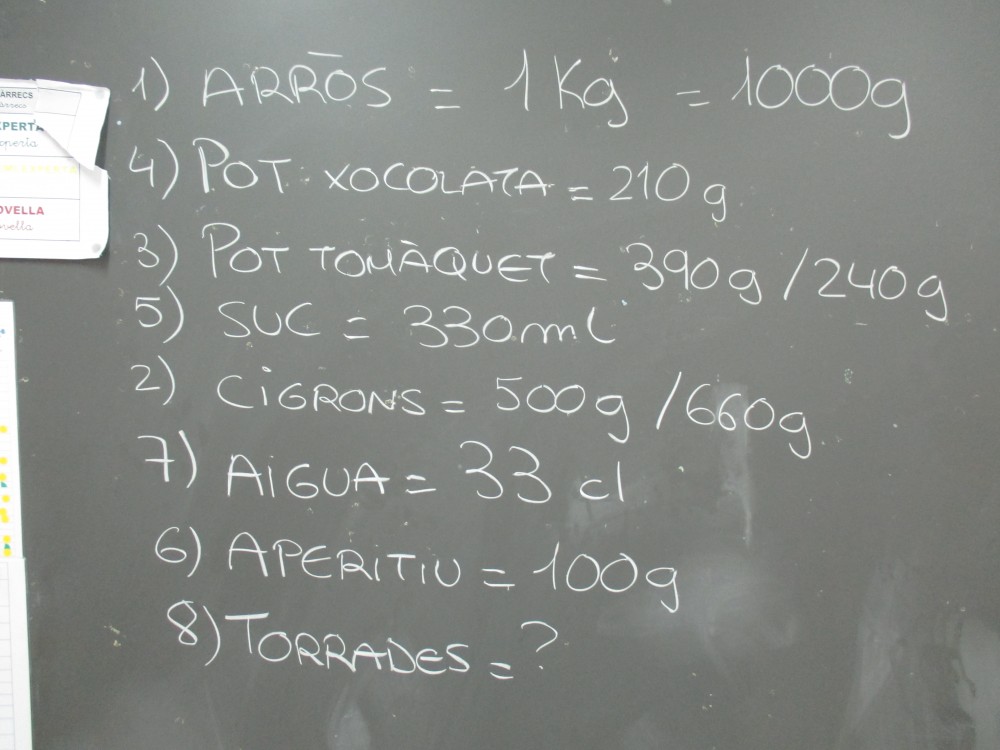 ÀRRECS
àrrecs
XPERTA
xperta
OVELLA
ovella
1) ARRÒS = 1 Kg = 1000g
4) POT XOCOLATA = 210 g
3) POT TOMÀQUET = 390g / 240g
5) SUC = 330ml
2) CIGRONS = 500g / 660g
7) AIGUA = 33 cl
6) APERITIU = 100g
8) TORRADES = ?